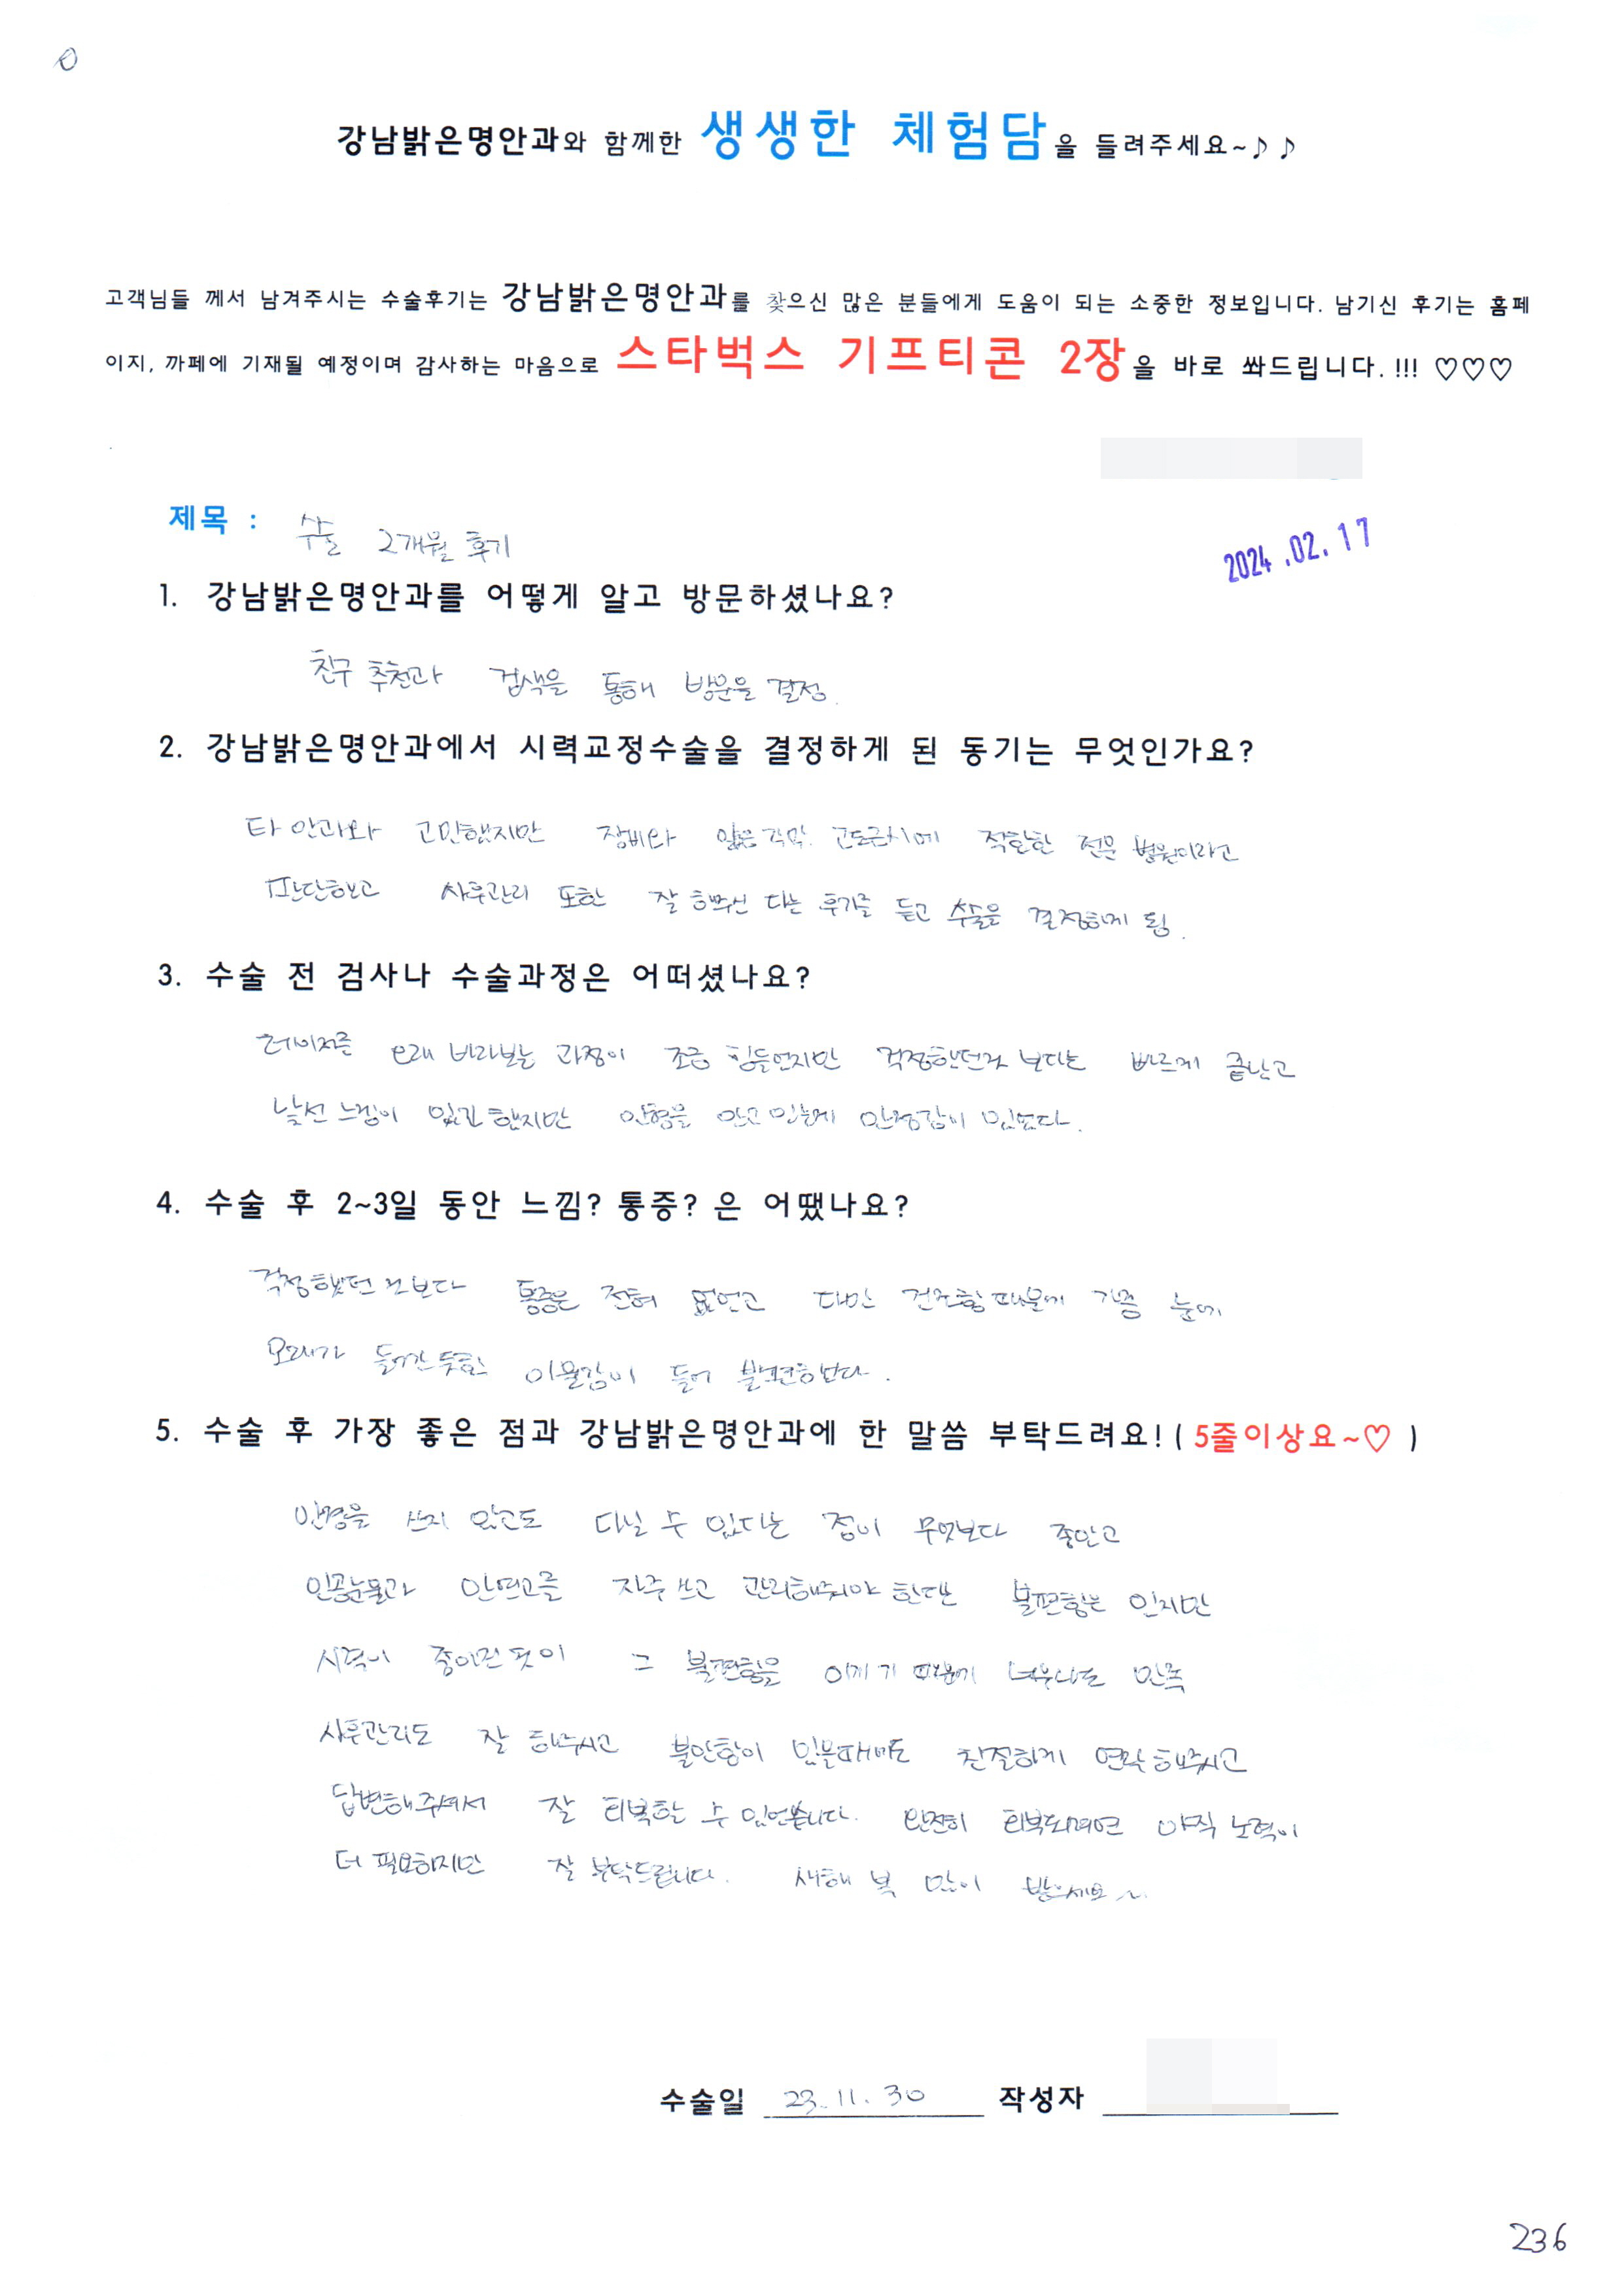 강남밝은명안과와 함께한 생생한 체험담을 들려주세요~♪♪
고객님들 께서 남겨주시는 수술후기는 강남밝은명안과를 찾으신 많은 분들에게 도움이 되는 소중한 정보입니다. 남기신 후기는 홈페
이지, 까페에 기재될 예정이며 감사하는 마음으로 스타벅스 기프티콘 2장을 바로 쏴드립니다.!!! ♡♡♡
제목 : 수술 2개월 후기
2024.02.17
1. 강남밝은명안과를 어떻게 알고 방문하셨나요?
친구 추천과 검색을 통해 방문을 결정.
2. 강남밝은명안과에서 시력교정수술을 결정하게 된 동기는 무엇인가요?
타 안과와 고민했지만 장비와 얇은 각막. 고도근시에 적합한 전문 병원이라고
판단하고 사후관리 또한 잘 해주신 다는 후기를 듣고 수술을 결정하게 됨.
3. 수술 전 검사나 수술과정은 어떠셨나요?
레이저를 오래 바라보는 과정이 조금 힘들었지만 걱정했던것 보다는 빠르게 끝났고
낯선 느낌이 있긴 했지만 인형을 안고 있는게 안정감이 있었다.
4. 수술 후 2~3일 동안 느낌? 통증? 은 어땠나요?
걱정했던 것보다 통증은 전혀 없었고 다만 건조함 때문에 가끔 눈에
모래가 들어간 듯한 이물감이 들어 불편하였다.
5. 수술 후 가장 좋은 점과 강남밝은명안과에 한 말씀 부탁드려요!( 5줄이상요~♡ )
안경을 쓰지 않고도 다닐 수 있다는 점이 무엇보다 좋았고
인공눈물과 안연고를 자주 쓰고 관리해줘야 한다는 불편함은 있지만
시력이 좋아진 것이 그 불편함을 이기기 때문에 너무나도 만족
사후관리도 잘 해주시고 불안함이 있을때마다 친절하게 연락해주시고
답변해주셔서 잘 회복할 수 있었습니다. 완전히 회복되려면 아직 노력이
더 필요하지만 잘 부탁드립니다. 새해 복 많이 받으세요~.
수술일 23.11.30 작성자
236